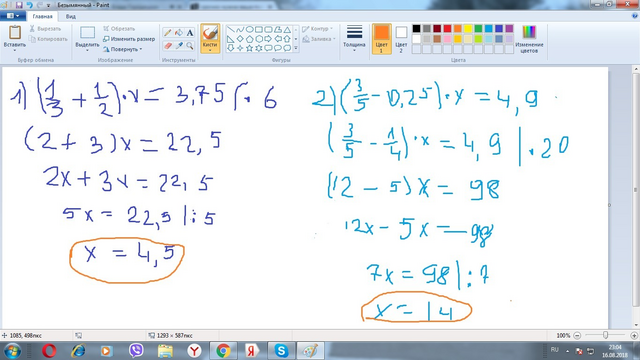 Безымянный - Paint
Файл
Главная
Вид
Вставить
Вырезать
Копировать
Буфер обмена
Выделить
Обрезать
Изменить размер
Повернуть
Изображение
Инструменты
Кисти
Контур
Заливка
Фигуры
Толщина
Цвет 1
Цвет 2
Изменение цветов
Цвета
1) (1/3 + 1/2)·x = 3,75 |· 6
(2 + 3)x = 22,5
2x + 3x = 22,5
5x = 22,5 |: 5
x = 4,5
2) (3/5 - 0,25)·x = 4,9
(3/5 - 1/4)·x = 4,9 |· 20
(12 - 5)x = 98
12x - 5x = 98
7x = 98 |: 7
x = 14
1085, 498пкс
1293 × 587пкс
100%
RU
23:04
16.08.2018